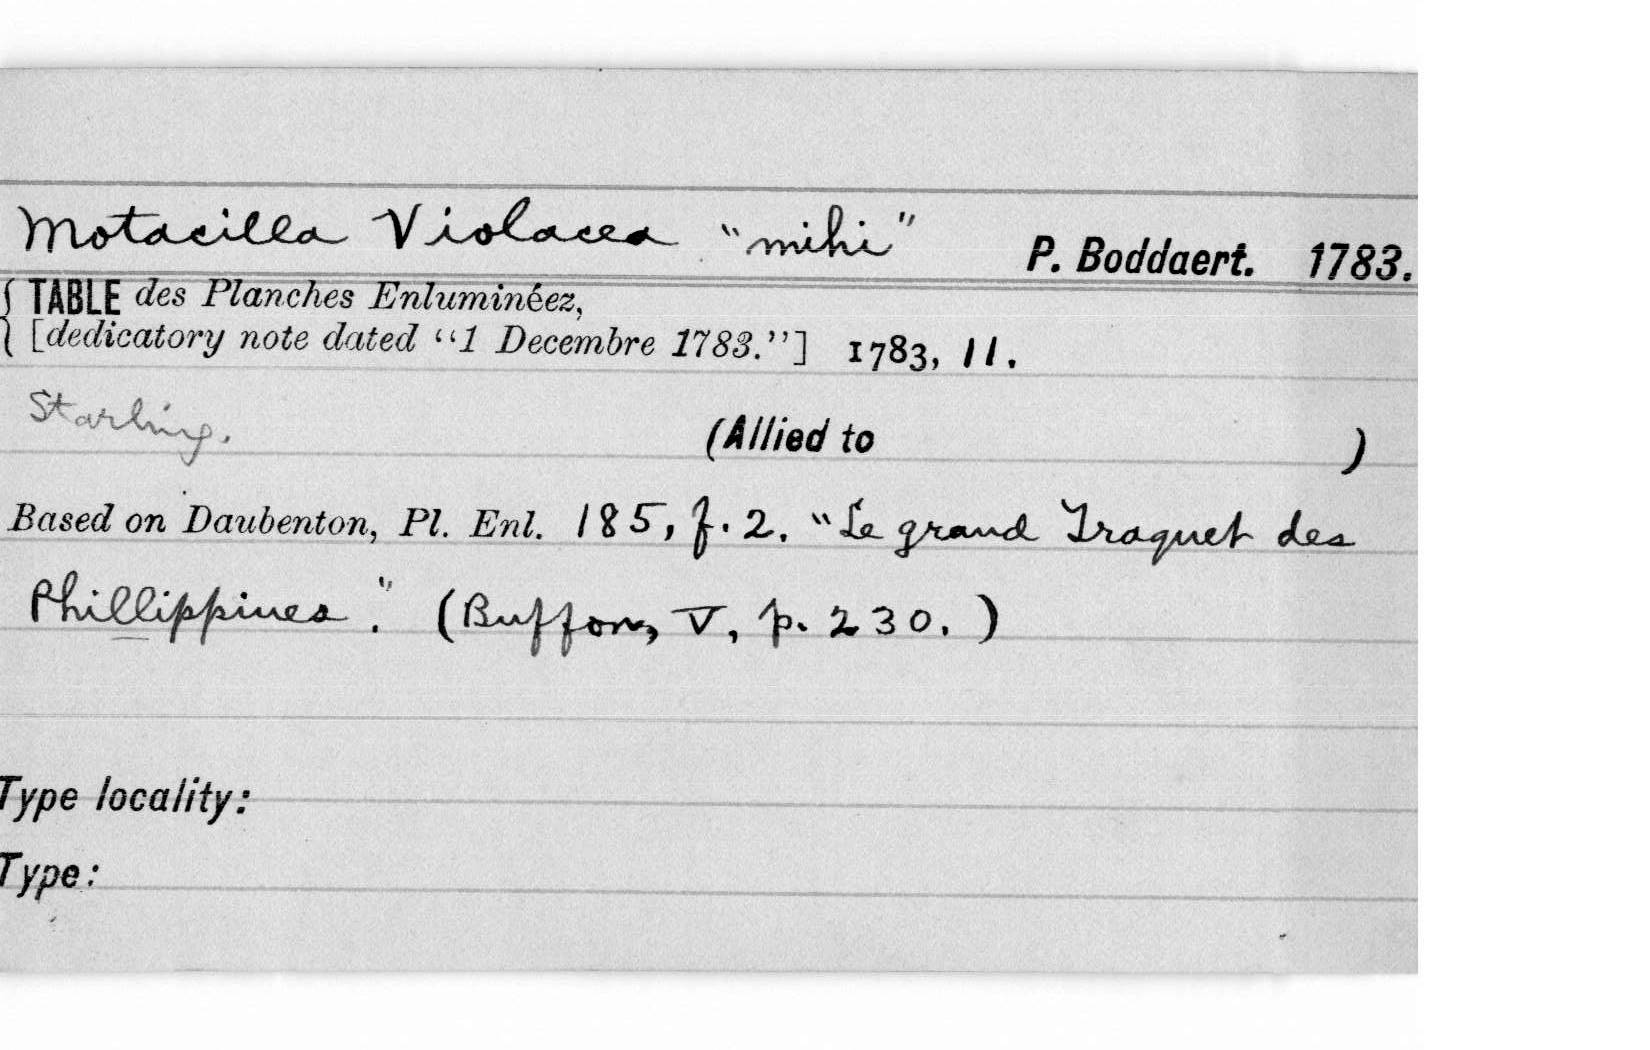 Motacilla Violacea "mihi" P. Boddaert. 1783.
TABLE des Planches Enluminéez,
[dedicatory note dated "1 Decembre 1783."] 1783, 11.
Starling. (Allied to )
Based on Daubenton, Pl. Enl. 185, f. 2. "Le grand Traquet des
Phillippines." (Buffon, V, p. 230.)
Type locality:
Type: